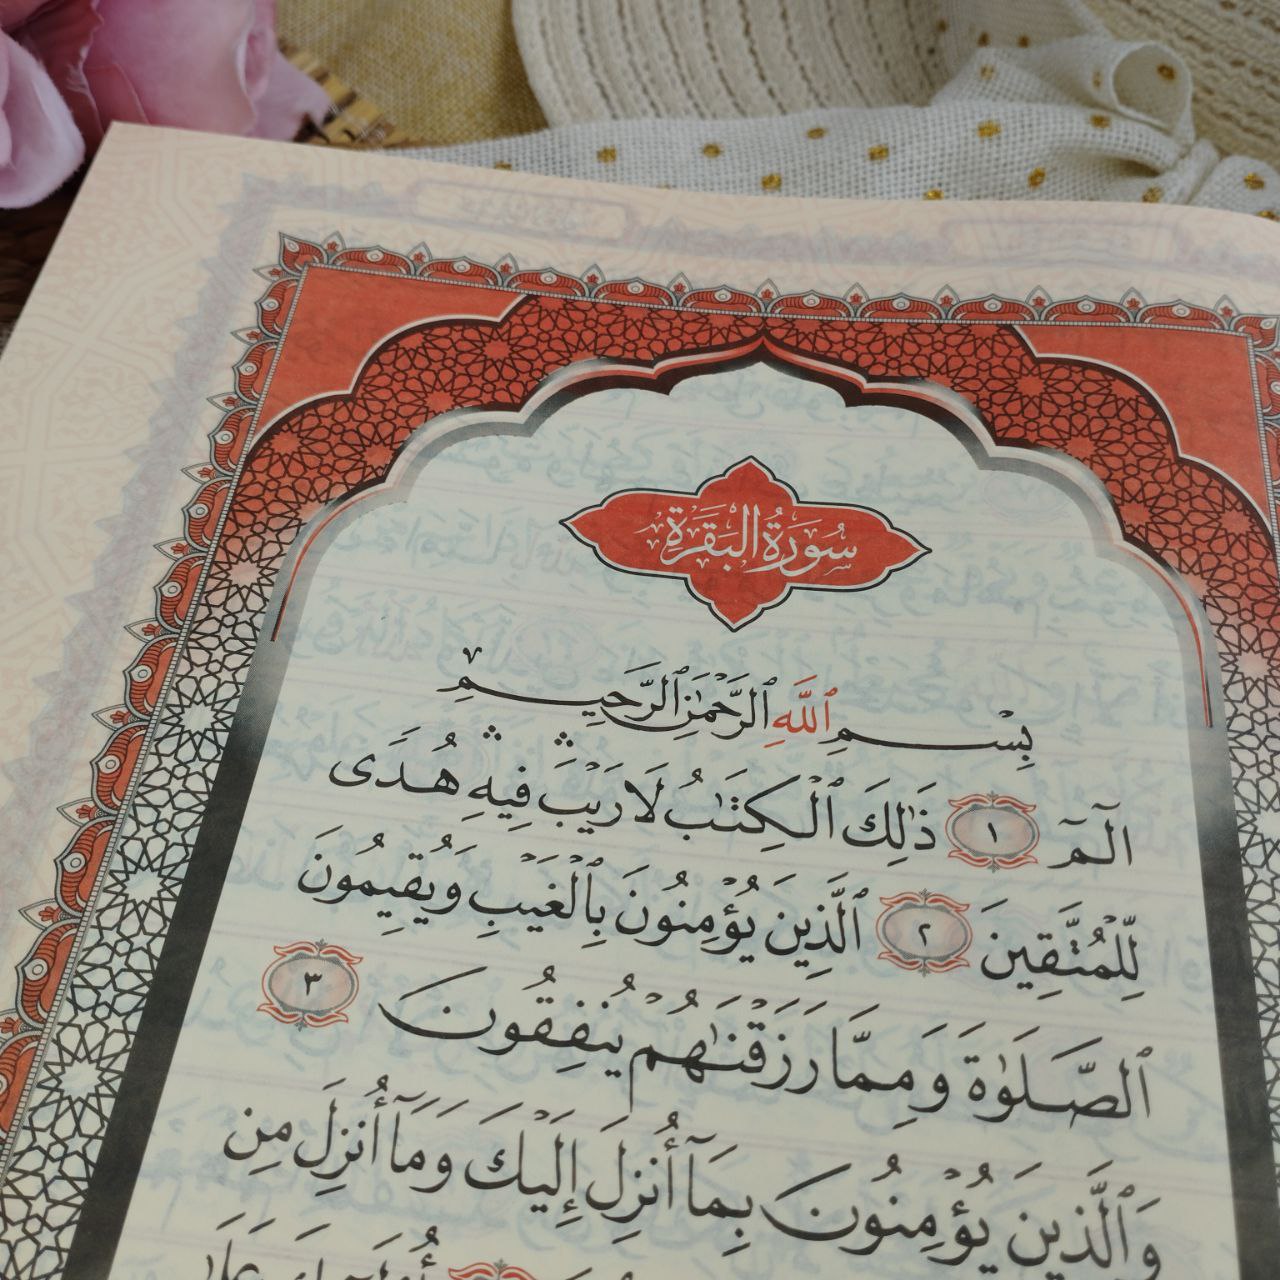 سُورَةُ البَقَرَةِ
بِسْمِ ٱللَّهِ ٱلرَّحْمَٰنِ ٱلرَّحِيمِ
الٓمٓ ١ ذَٰلِكَ ٱلْكِتَٰبُ لَا رَيْبَ ۛ فِيهِ ۛ هُدًى
لِّلْمُتَّقِينَ ٢ ٱلَّذِينَ يُؤْمِنُونَ بِٱلْغَيْبِ وَيُقِيمُونَ
ٱلصَّلَوٰةَ وَمِمَّا رَزَقْنَٰهُمْ يُنفِقُونَ ٣
وَٱلَّذِينَ يُؤْمِنُونَ بِمَآ أُنزِلَ إِلَيْكَ وَمَآ أُنزِلَ مِن